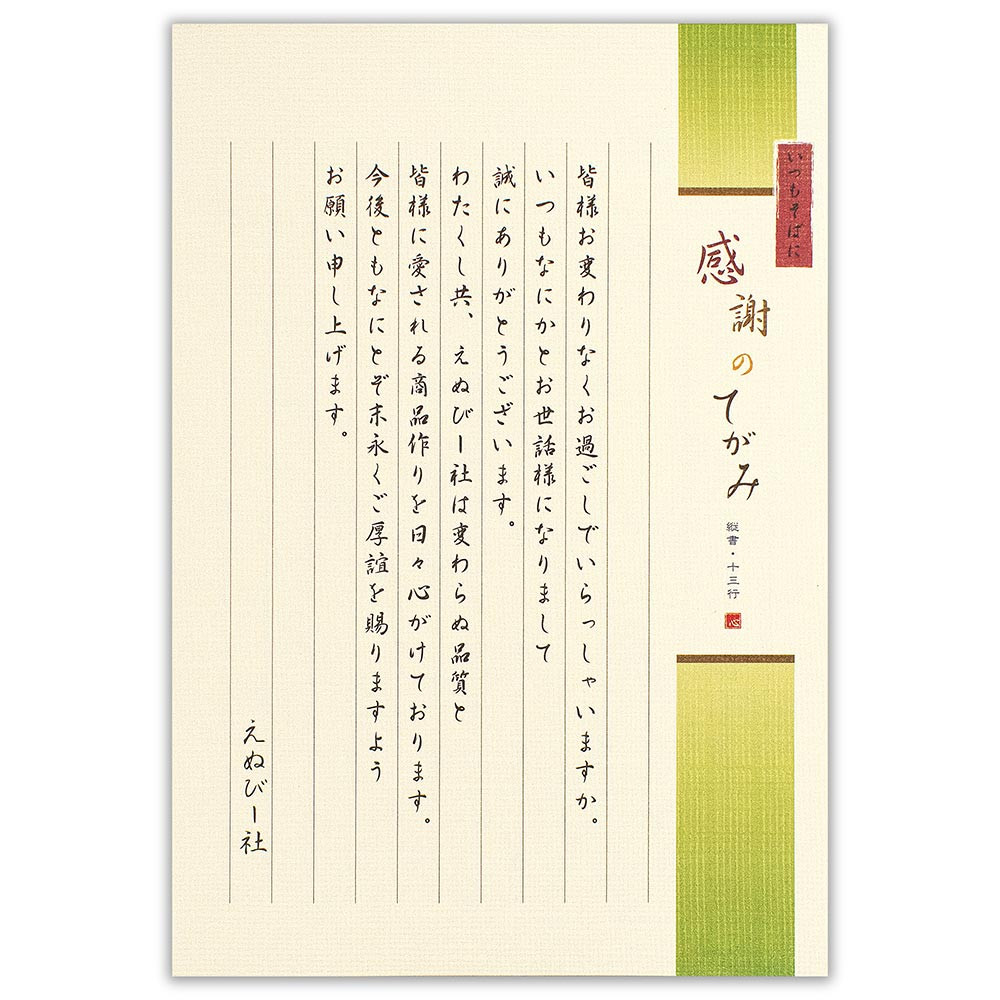 いつもそばに
感謝のてがみ
縦書・十三行
心
皆様お変わりなくお過ごしでいらっしゃいますか。
いつもなにかとお世話様になりまして
誠にありがとうございます。
わたくし共、えぬびー社は変わらぬ品質と
皆様に愛される商品作りを日々心がけております。
今後ともなにとぞ末永くご厚誼を賜りますよう
お願い申し上げます。
えぬびー社